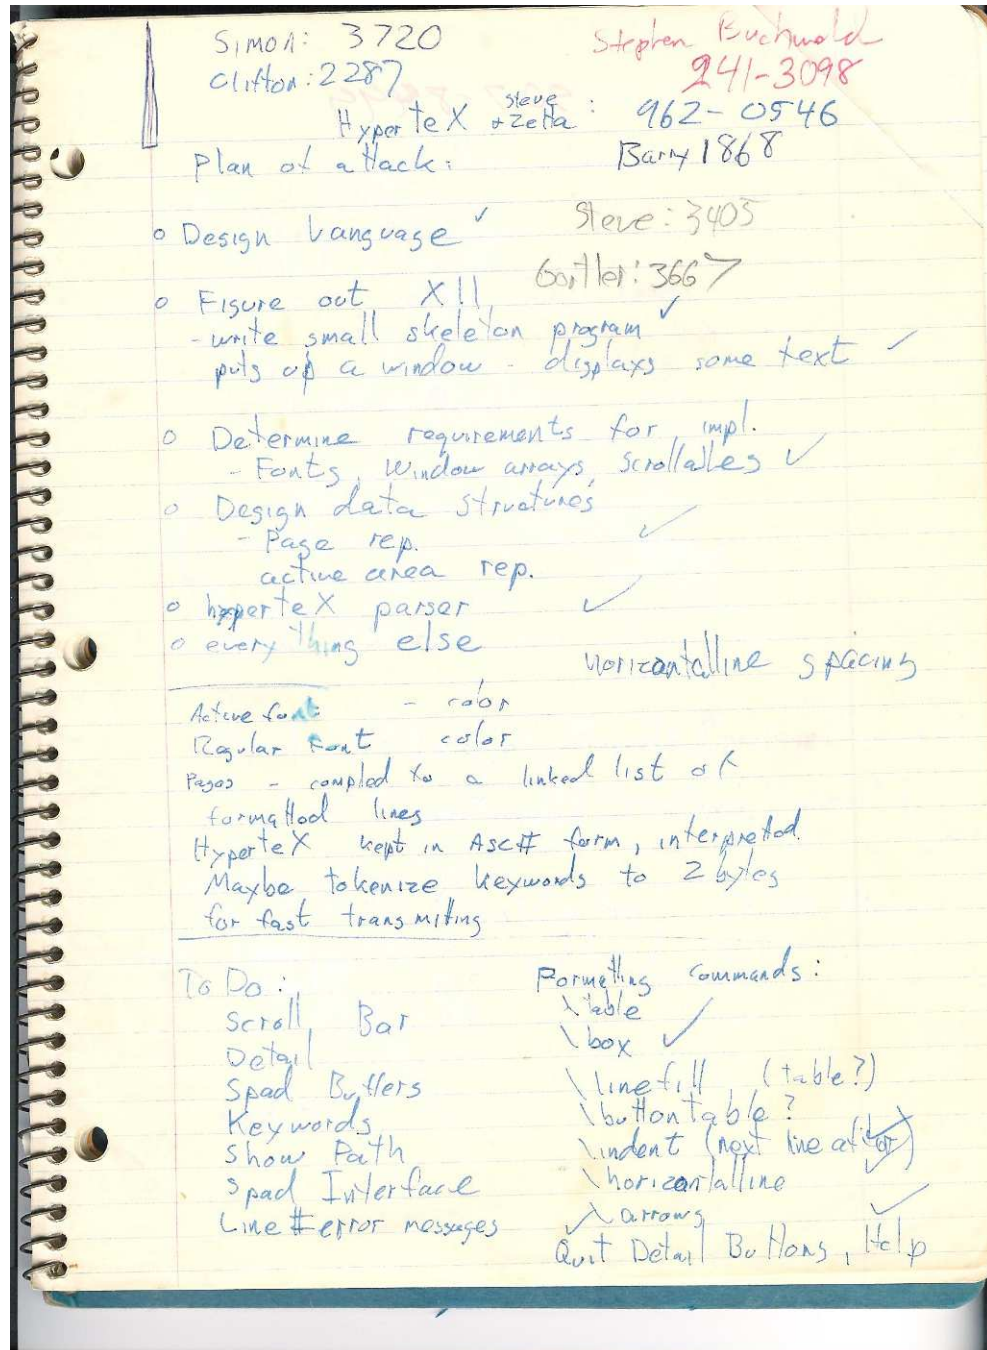 Simon: 3720
Stephen Buchwald
Clifton: 2287
241-3098
HyperteX steve + Zetta : 962-0546
Plan of attack:
Barry 1868
Steve: 3405
o Design Language ✓
Gortler: 3667
o Figure out X11
- write small skeleton program ✓
puts up a window - displays some text ✓
o Determine requirements for impl.
- Fonts, Window arrays, scrollables ✓
o Design data structures
- Page rep. ✓
active area rep.
o hyperteX parser ✓
o everything else
horizontalline spacing
Active font - color
Regular Font color
Pages - compled to a linked list of
formatted lines
HyperteX kept in AscII form, interpreted.
Maybe tokenize keywords to 2 bytes
for fast transmiting
To Do:
Scroll Bar
Detail
Spad Buffers
Keywords
Show Path
Spad Interface
Line # error messages
Formatting commands:
\table
\box ✓
\linefill (table?)
\buttontable?
\indent (next line
\horizontalline ✓
✓ \arrows
Quit Detail Buttons, Help ✓